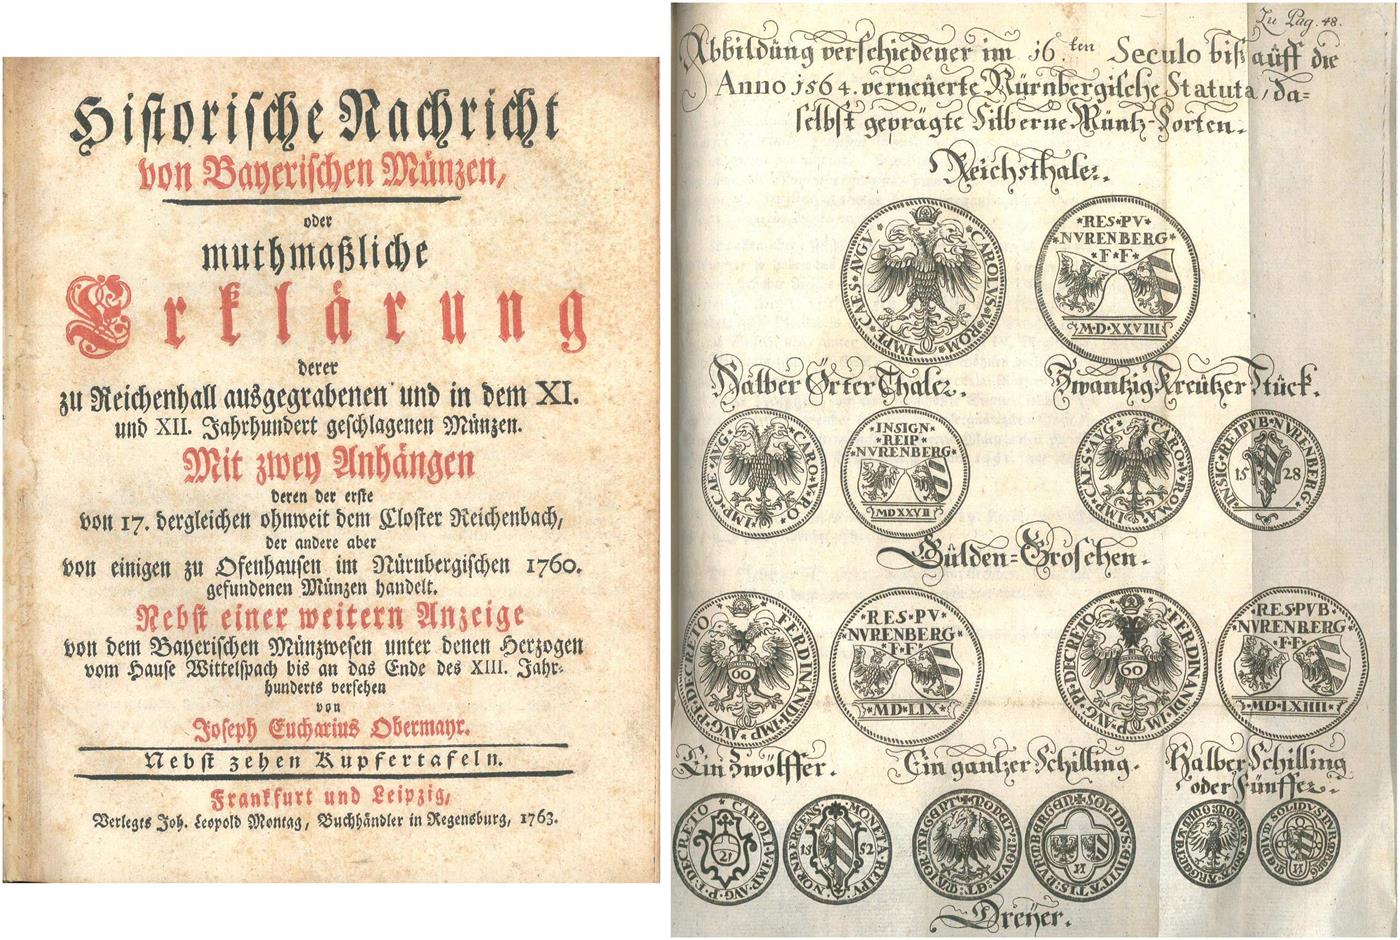 Historische Nachricht
von Bayerischen Münzen,
oder
muthmaßliche
Erklärung
derer
zu Reichenhall ausgegrabenen und in dem XI.
und XII. Jahrhundert geschlagenen Münzen.
Mit zwey Anhängen
deren der erste
von 17. dergleichen ohnweit dem Closter Reichenbach,
der andere aber
von einigen zu Osenhausen im Nürnbergischen 1760.
gefundenen Münzen handelt.
Nebst einer weitern Anzeige
von dem Bayerischen Münzwesen unter denen Herzogen
vom Hause Wittelspach bis an das Ende des XIII. Jahr-
hunderts versehen
von
Joseph Eucharius Obermayr.
Nebst zehen Kupfertafeln.
Frankfurt und Leipzig,
Verlegts Joh. Leopold Montag, Buchhändler in Regensburg, 1763.
Zu Pag. 48.
Abbildüng verschiedener im 16.ten Seculo biß aüff die
Anno 1564. verneüerte Nürnbergische Statuta, da-
selbst geprägte Silberne Müntz-Sorten.
Reichsthaler.
CAROLVS ROM IMPE CAES AVGV
RES PV
NVRENBERG
F F
M D XXVIII
Halber Örter Thaler.
Zwantzig Kreützer Stück.
CARO V RO IMP CAE AVG
INSIGN
REIP
NVRENBERG
MDXXVII
CARO V ROMA IMP CAES AVG
INSIG REIPVB NVRENBERG
15 28
Gülden-Groschen.
FERDINANDI IMP AVG P F DECRETO
60
RES PV
NVRENBERG
F F
MD LIX
FERDINANDI IM P AVG P F DECRETO
60
RES PVB
NVRENBERG
F F
MD LXIIII
Ein Zwölffer.
Ein gantzer Schilling.
Halber Schilling
oder Fünffer.
CAROLI V IMP AVG P F DECRETO
21
MONETA REIPV NORNBERGENS
15 52
SOLIDVS CIVITATIS NVRNBERGEN
N
Dreÿer.